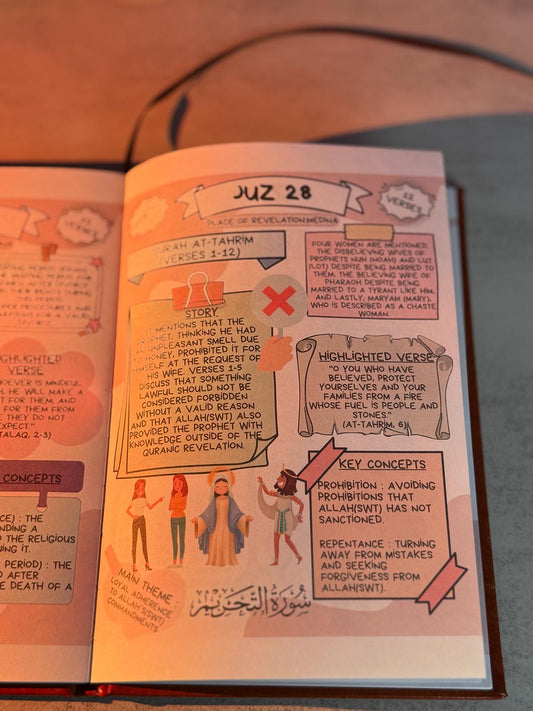 JUZ 28
12 VERSES
PLACE OF REVELATION:MEDINA
SURAH AT-TAHRIM
(VERSES 1-12)
STORY
IT MENTIONS THAT THE
PROPHET, THINKING HE HAD
AN UNPLEASANT SMELL DUE
TO HONEY, PROHIBITED IT FOR
HIMSELF AT THE REQUEST OF
HIS WIFE. VERSES 1-5
DISCUSS THAT SOMETHING
LAWFUL SHOULD NOT BE
CONSIDERED FORBIDDEN
WITHOUT A VALID REASON
AND THAT ALLAH(SWT) ALSO
PROVIDED THE PROPHET WITH
KNOWLEDGE OUTSIDE OF THE
QURANIC REVELATION.
FOUR WOMEN ARE MENTIONED,
THE DISBELIEVING WIVES OF
PROPHETS NUH (NOAH) AND LUT
(LOT) DESPITE BEING MARRIED TO
THEM, THE BELIEVING WIFE OF
PHARAOH DESPITE BEING
MARRIED TO A TYRANT LIKE HIM,
AND LASTLY, MARYAM (MARY),
WHO IS DESCRIBED AS A CHASTE
WOMAN.
HIGHLIGHTED VERSE
"O YOU WHO HAVE
BELIEVED, PROTECT
YOURSELVES AND YOUR
FAMILIES FROM A FIRE
WHOSE FUEL IS PEOPLE AND
STONES."
(AT-TAHRIM, 6)
KEY CONCEPTS
PROHIBITION : AVOIDING
PROHIBITIONS THAT
ALLAH(SWT) HAS NOT
SANCTIONED.
REPENTANCE : TURNING
AWAY FROM MISTAKES
AND SEEKING
FORGIVENESS FROM
ALLAH(SWT).
MAIN THEME :
LOYAL ADHERENCE
TO ALLAH'S(SWT)
COMMANDMENTS
سُورَةُ التَّحْرِيمِ
VERSES
HIGHLIGHTED
VERSE
HOEVER IS MINDFUL
H, HE WILL MAKE A
T FOR THEM, AND
FOR THEM FROM
E THEY DO NOT
EXPECT."
TALAQ, 2-3)
CONCEPTS
CE) : THE
NDING A
D THE RELIGIOUS
NING IT.
PERIOD) : THE
D AFTER
E DEATH OF A